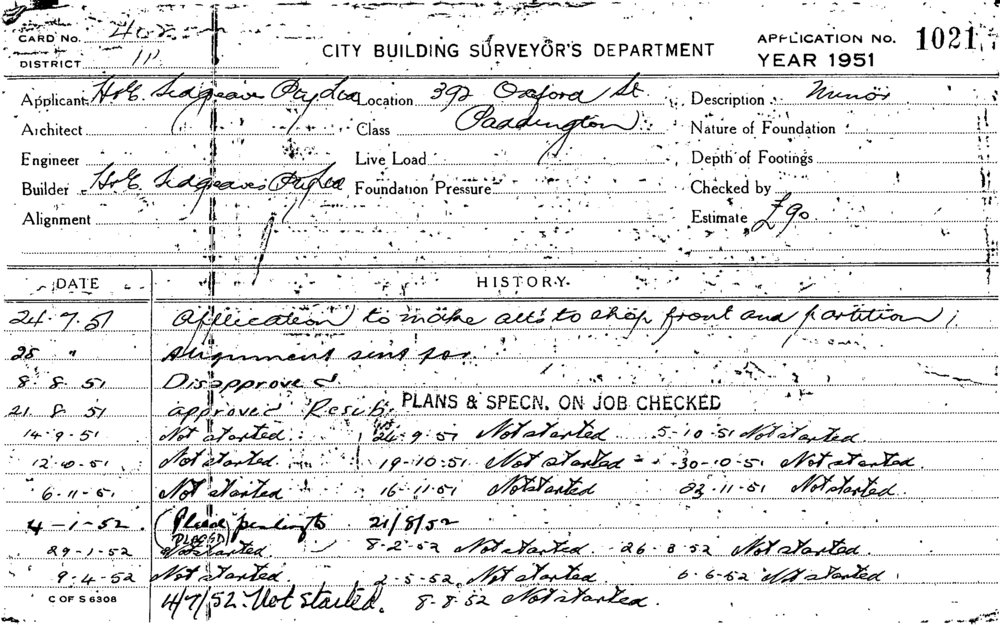 CARD No. 402
DISTRICT 111
CITY BUILDING SURVEYOR'S DEPARTMENT
APPLICATION No. 1021
YEAR 1951
Applicant H & C Sedgeave Pty Ltd Location 392 Oxford St Description Minor
Architect Class Paddington Nature of Foundation
Engineer Live Load Depth of Footings
Builder H & C Sedgeaves Pty Ltd Foundation Pressure Checked by
Alignment Estimate £90
DATE HISTORY.
24.7.51 Application to make alts to shop front and partition;
25 " Alignment sent for
8.8.51 Disapproved.
21.8.51 approved Resub. PLANS & SPECN. ON JOB CHECKED
14.9.51 Not started. 24.9.51 Not started 5-10.51 Not started.
12.10.51 Not started. 19-10.51 Not started - 30-10.51 Not started.
6.11.51 Not started 16.11.51 Not started 23.11.51 Not started.
4-1-52. (Placed pending to 21/8/52
PLACED)
29-1-52 Not started. 8-2-52 Not started. 26-3-52 Not started.
9.4-52 Not started. 2-5-52, Not started. 6-6-52 Not started.
C OF S 6308 4/7/52. Not started. 8-8.52 Not started.